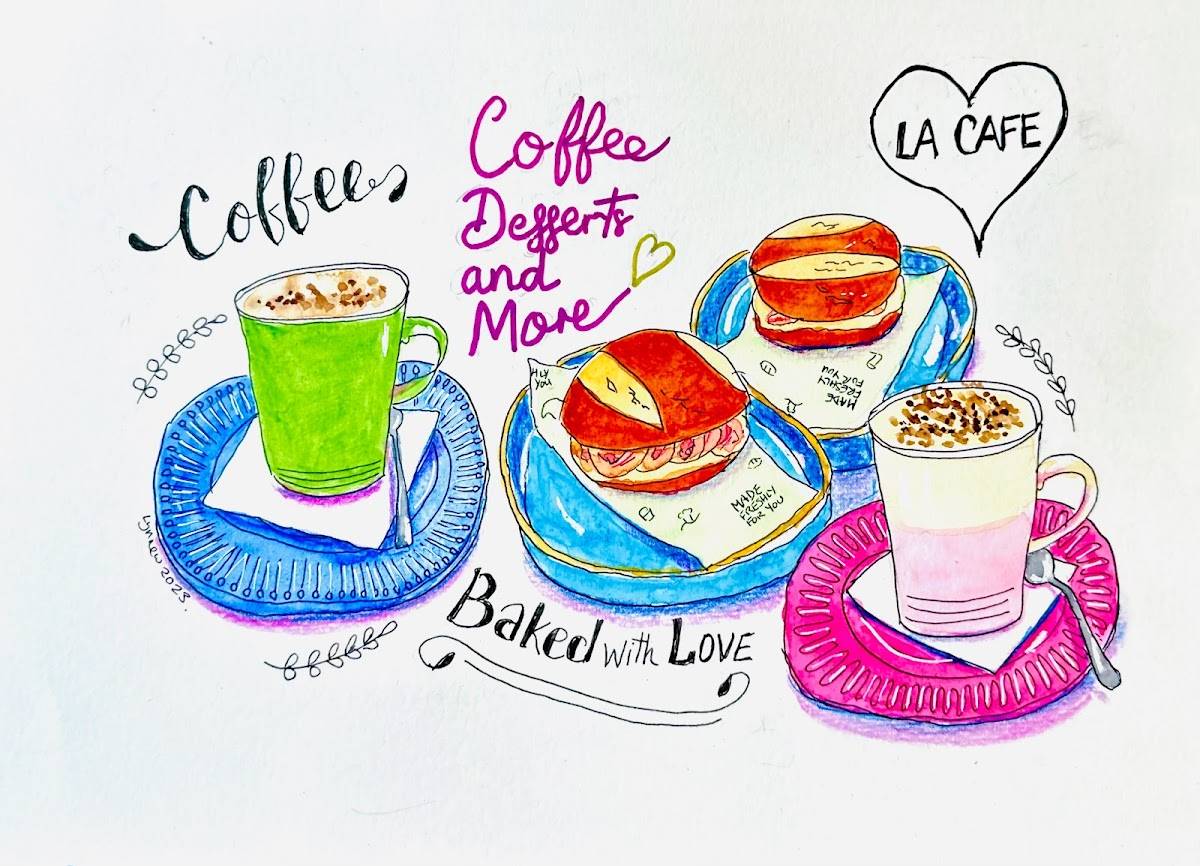 LA CAFE
Coffee
Coffee
Desserts
and
More
HLY
YOU
MADE
FRESHLY
FOR YOU
MADE
FRESHLY
FOR YOU
Baked with Love
lynlew 2023.